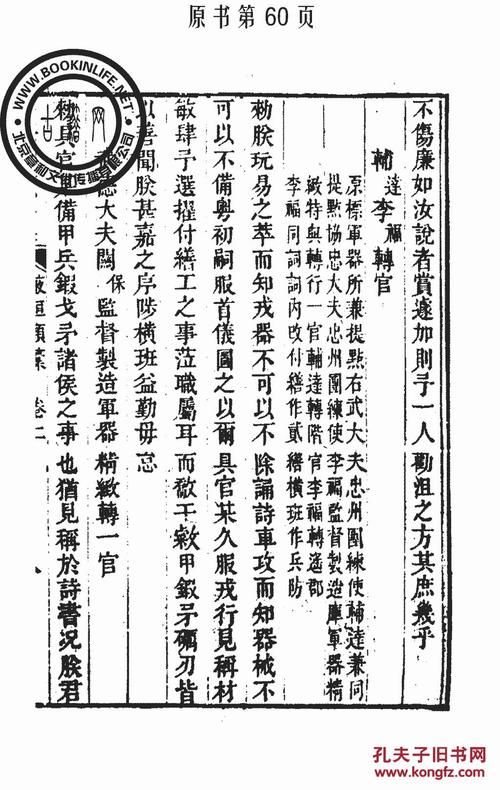 原书第60页
不傷廉如汝說者賞遂加則予一人勸沮之方其庶幾乎
輔逵李福轉官
原標軍器所兼提點右武大夫忠州團練使輔逵兼同
提點協忠大夫忠州團練使李福監督製造庫軍器精
緻特與轉行一官輔逵轉階官李福轉遙郡
李福同詞詞內改付繕作貳繕橫班作兵防
勑朕玩易之萃而知戎器不可以不除誦詩車攻而知器械不
可以不備粵初嗣服首儀圖之以爾具官某久服戎行見稱材
敏肆予選擢付繕工之事蒞職屬耳而敹干敹甲鍛矛礪刃皆
以善聞朕甚嘉之序陟橫班益勤毋怠
德大夫關保監督製造軍器精緻轉一官
勑具官備甲兵鍛戈矛諸侯之事也猶見稱於詩書況朕君
卷二
WWW.BOOKINLIFE.NET
网
孔夫子旧书网
www.kongfz.com